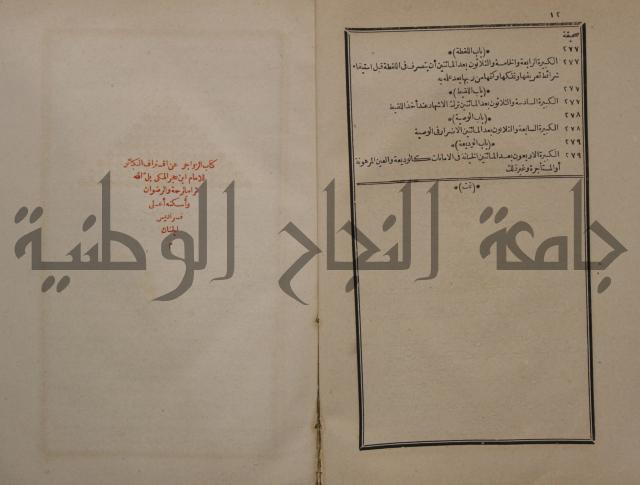 ١٢
صحيفة
*(باب اللقطة)*
٢٧٧ الكبيرة الرابعة والخامسة والثلاثون بعد المائتين أن يتصرف فى اللقطة قبل استيفاء
شرائط تعريفها وتملكها وكتمها من ربها بعد علمه به
٢٧٧ *(باب اللقيط)*
٢٧٧ الكبيرة السادسة والثلاثون بعد المائتين ترك الاشهاد عند أخذ اللقيط
٢٧٨ *(باب الوصية)*
٢٧٨ الكبيرة السابعة والثلاثون بعد المائتين الاضرار فى الوصية
٢٧٩ *(باب الوديعة)*
٢٧٩ الكبيرة الاربعون بعد المائتين الخيانة فى الامانات كالوديعة والعين المرهونة
أو المستأجرة وغير ذلك
*(تمت)*
كتاب الزواجر عن اقتراف الكبائر
للامام ابن حجر المكى بل الله
ثراه بالرحمة والرضوان
وأسكنه أعلى
فراديس
الجنان
م
جامعة النجاح الوطنية